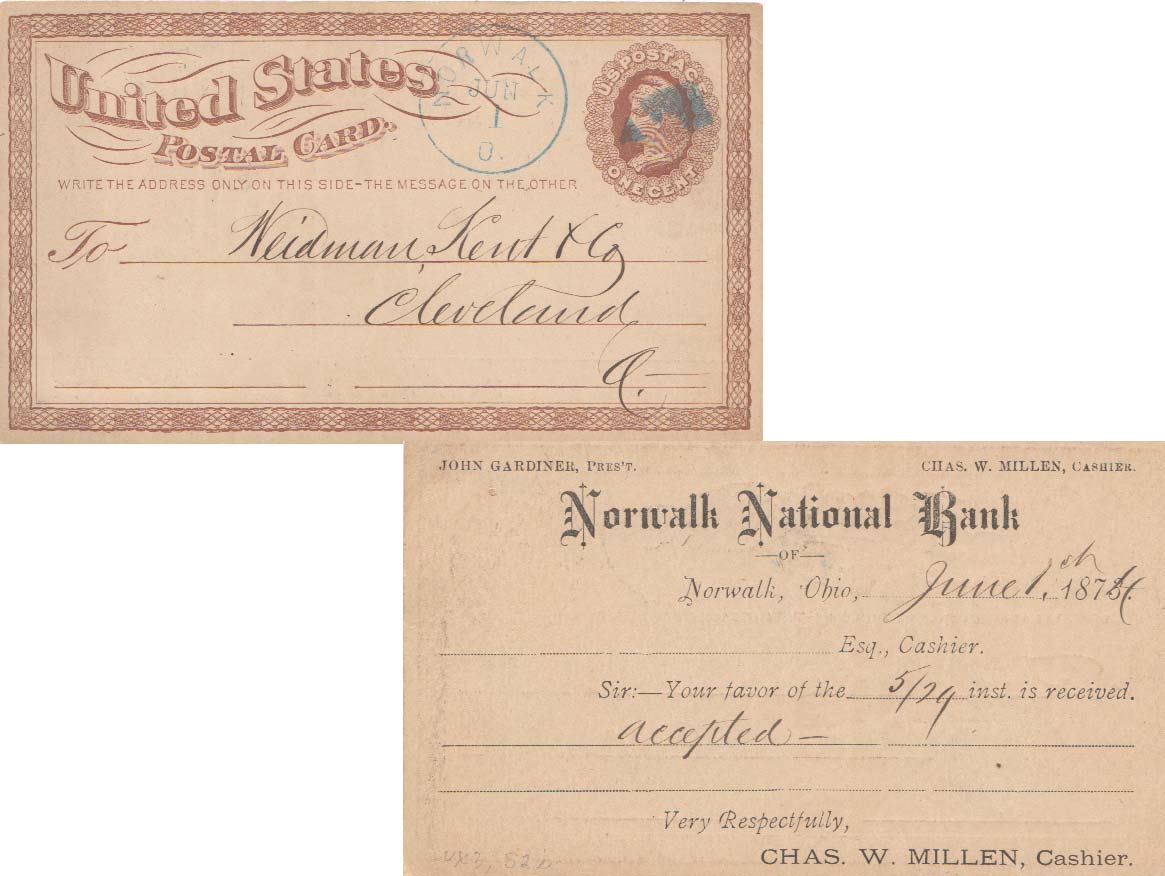 United States
Postal Card.
NORWALK
JUN
1
O.
U.S. POSTAGE
ONE CENT
WRITE THE ADDRESS ONLY ON THIS SIDE-THE MESSAGE ON THE OTHER
To Weidman, Kent & Co
Cleveland
O.
JOHN GARDINER, PRES'T. CHAS. W. MILLEN, CASHIER.
Norwalk National Bank
OF
Norwalk, Ohio, June 1, 1874
Esq., Cashier.
Sir:—Your favor of the 5/29 inst. is received.
accepted —
Very Respectfully,
CHAS. W. MILLEN, Cashier.